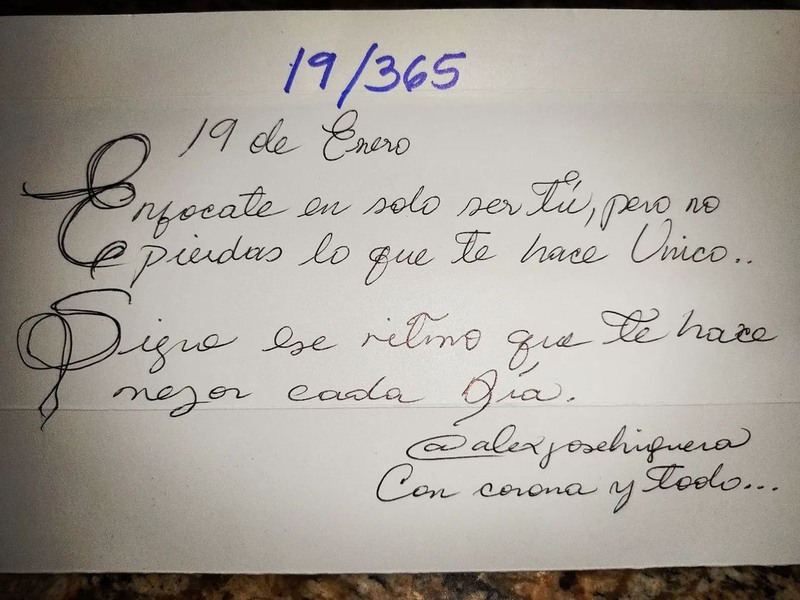 19/365
19 de Enero
Enfocate en solo ser tú, pero no
pierdas lo que te hace Unico..
Sigue ese ritmo que te hace
mejor cada Día.
@alexjosehiguera
Con corona y todo...